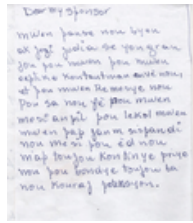 Dear my sponsor
mwen panse nou byen
ak jozi jodia se yon gran
jou pou mwen pou mwen
exprime kontantman avè nou,
et pou mwen Remesye nou
Pou sa nou yè pou mwen
mesi anpil pou lekol mwen
mwen pap janm sispandi
nou mesi pou èd nou
map toujou kontinye priye
pou bondye toujou ba
nou kouraj